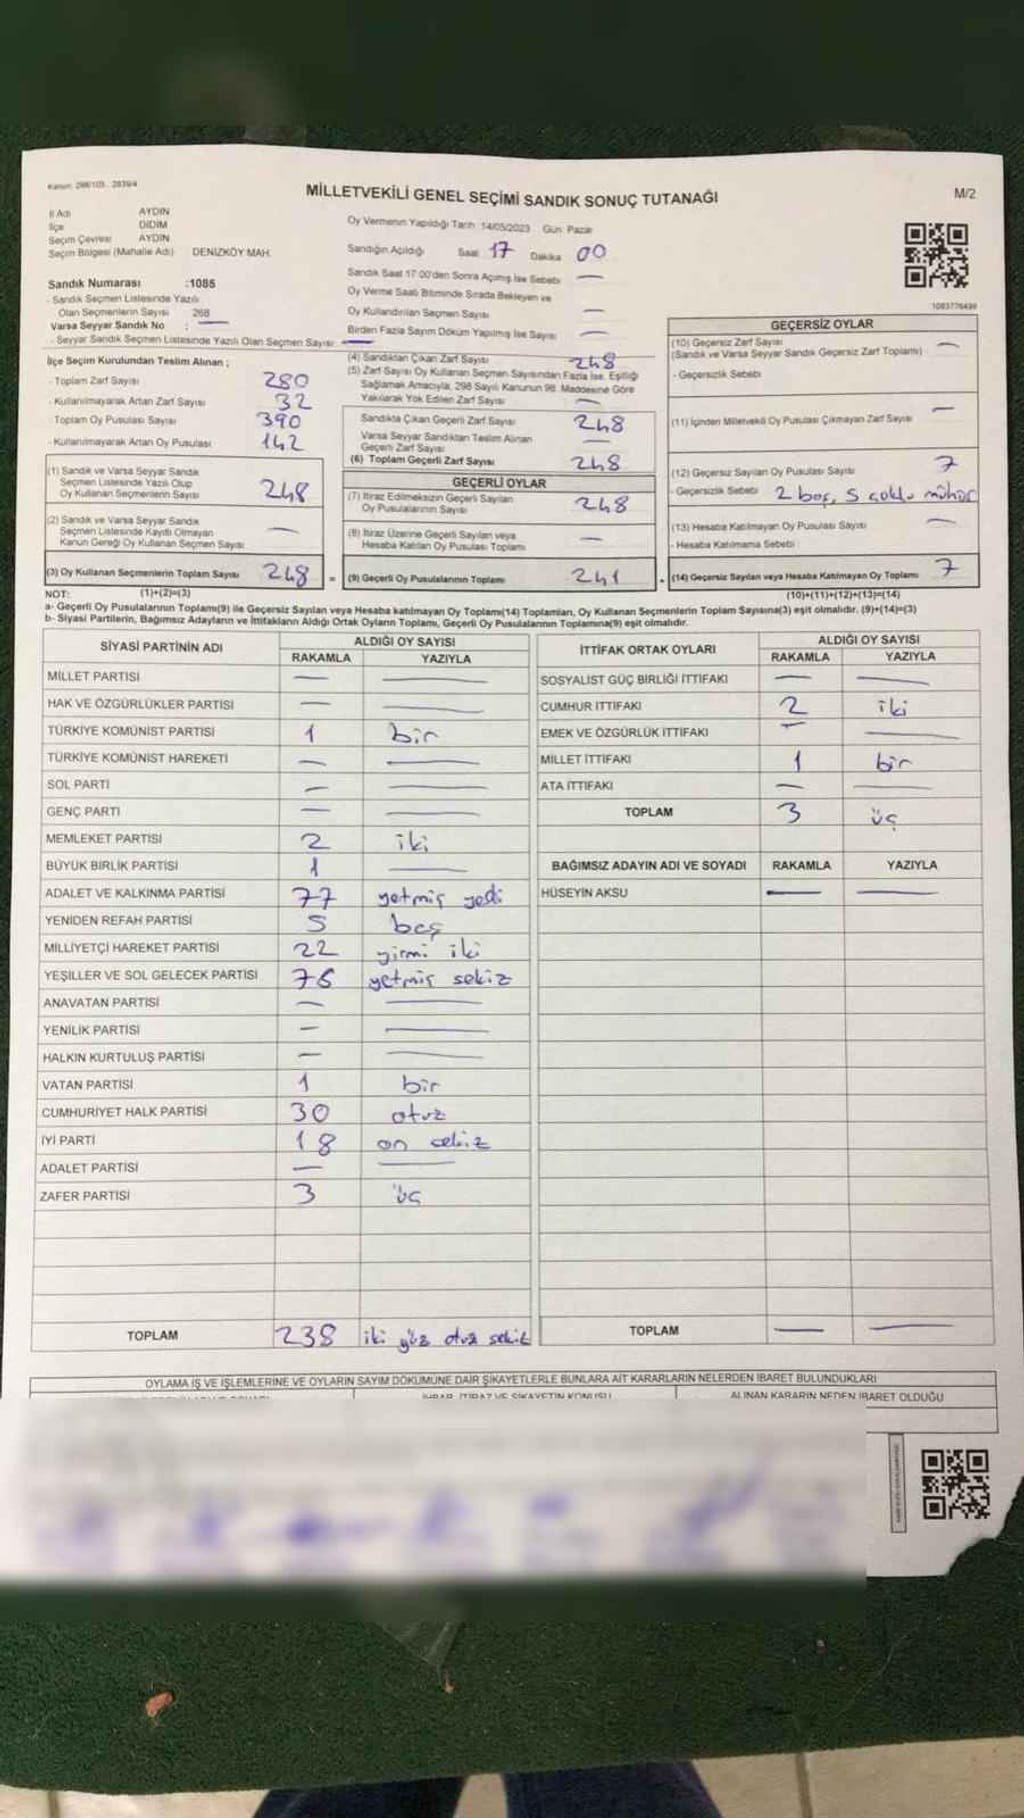 MİLLETVEKİLİ GENEL SEÇİMİ SANDIK SONUÇ TUTANAĞI
M/2
İl Adı AYDIN
İlçe DİDİM
Seçim Çevresi AYDIN
Seçim Bölgesi (Mahalle Adı) DENİZKÖY MAH.
Sandık Numarası :1085
- Sandık Seçmen Listesinde Yazılı
Olan Seçmenlerin Sayısı 268
Varsa Seyyar Sandık No : —
- Seyyar Sandık Seçmen Listesinde Yazılı Olan Seçmen Sayısı —
Oy Vermenin Yapıldığı Tarih :14/05/2023 Gün: Pazar
Sandığın Açıldığı Saat 17 Dakika 00
Sandık Saat 17:00'den Sonra Açılmış İse Sebebi —
Oy Verme Saati Bitiminde Sırada Bekleyen ve
Oy Kullandırılan Seçmen Sayısı —
Birden Fazla Sayım Döküm Yapılmış İse Sayısı —
1083776499
İlçe Seçim Kurulundan Teslim Alınan ;
- Toplam Zarf Sayısı 280
- Kullanılmayarak Artan Zarf Sayısı 32
- Toplam Oy Pusulası Sayısı 390
- Kullanılmayarak Artan Oy Pusulası 142
(1) Sandık ve Varsa Seyyar Sandık
Seçmen Listesinde Yazılı Olup
Oy Kullanan Seçmenlerin Sayısı 248
(2) Sandık ve Varsa Seyyar Sandık
Seçmen Listesinde Kayıtlı Olmayan
Kanun Gereği Oy Kullanan Seçmen Sayısı —
(3) Oy Kullanan Seçmenlerin Toplam Sayısı 248 =
(4) Sandıktan Çıkan Zarf Sayısı 248
(5) Zarf Sayısı Oy Kullanan Seçmen Sayısından Fazla İse, Eşitliği
Sağlamak Amacıyla, 298 Sayılı Kanunun 98. Maddesine Göre
Yakılarak Yok Edilen Zarf Sayısı —
Sandıkta Çıkan Geçerli Zarf Sayısı 248
Varsa Seyyar Sandıktan Teslim Alınan
Geçerli Zarf Sayısı —
(6) Toplam Geçerli Zarf Sayısı 248
GEÇERLİ OYLAR
(7) İtiraz Edilmeksizin Geçerli Sayılan
Oy Pusulalarının Sayısı 248
(8) İtiraz Üzerine Geçerli Sayılan veya
Hesaba Katılan Oy Pusulası Toplamı —
(9) Geçerli Oy Pusulalarının Toplamı 241
GEÇERSİZ OYLAR
(10) Geçersiz Zarf Sayısı —
(Sandık ve Varsa Seyyar Sandık Geçersiz Zarf Toplamı)
- Geçersizlik Sebebi
(11) İçinden Milletvekili Oy Pusulası Çıkmayan Zarf Sayısı —
(12) Geçersiz Sayılan Oy Pusulası Sayısı 7
- Geçersizlik Sebebi 2 boş, 5 çoklu mühür
(13) Hesaba Katılmayan Oy Pusulası Sayısı —
- Hesaba Katılmama Sebebi
(14) Geçersiz Sayılan veya Hesaba Katılmayan Oy Toplamı 7
NOT: (1)+(2)=(3) (10)+(11)+(12)+(13)=(14)
a- Geçerli Oy Pusulalarının Toplamı(9) ile Geçersiz Sayılan veya Hesaba katılmayan Oy Toplamı(14) Toplamları, Oy Kullanan Seçmenlerin Toplam Sayısına(3) eşit olmalıdır. (9)+(14)=(3)
b- Siyasi Partilerin, Bağımsız Adayların ve İttifakların Aldığı Ortak Oyların Toplamı, Geçerli Oy Pusulalarının Toplamına(9) eşit olmalıdır.
SİYASİ PARTİNİN ADI ALDIĞI OY SAYISI
RAKAMLA YAZIYLA
MİLLET PARTİSİ — —
HAK VE ÖZGÜRLÜKLER PARTİSİ — —
TÜRKİYE KOMÜNİST PARTİSİ 1 bir
TÜRKİYE KOMÜNİST HAREKETİ — —
SOL PARTİ — —
GENÇ PARTİ — —
MEMLEKET PARTİSİ 2 iki
BÜYÜK BİRLİK PARTİSİ 1 —
ADALET VE KALKINMA PARTİSİ 77 yetmiş yedi
YENİDEN REFAH PARTİSİ 5 beş
MİLLİYETÇİ HAREKET PARTİSİ 22 yirmi iki
YEŞİLLER VE SOL GELECEK PARTİSİ yetmiş sekiz
ANAVATAN PARTİSİ — —
YENİLİK PARTİSİ — —
HALKIN KURTULUŞ PARTİSİ — —
VATAN PARTİSİ 1 bir
CUMHURİYET HALK PARTİSİ 30 otuz
İYİ PARTİ 18 on sekiz
ADALET PARTİSİ — —
ZAFER PARTİSİ 3 üç
TOPLAM 238 iki yüz otuz sekiz
İTTİFAK ORTAK OYLARI ALDIĞI OY SAYISI
RAKAMLA YAZIYLA
SOSYALİST GÜÇ BİRLİĞİ İTTİFAKI — —
CUMHUR İTTİFAKI 2 iki
EMEK VE ÖZGÜRLÜK İTTİFAKI — —
MİLLET İTTİFAKI 1 bir
ATA İTTİFAKI — —
TOPLAM 3 üç
BAĞIMSIZ ADAYIN ADI VE SOYADI RAKAMLA YAZIYLA
HÜSEYİN AKSU — —
TOPLAM — —
OYLAMA İŞ VE İŞLEMLERİNE VE OYLARIN SAYIM DÖKÜMÜNE DAİR ŞİKAYETLERLE BUNLARA AİT KARARLARIN NELERDEN İBARET BULUNDUKLARI
İHBAR, İTİRAZ VE ŞİKAYETİN KONUSU ALINAN KARARIN NEDEN İBARET OLDUĞU